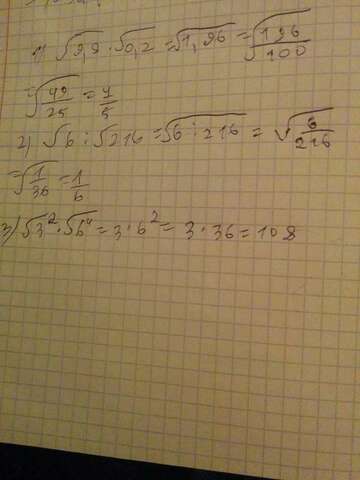 1) √9,8 · √0,2 = √1,96 = √196/100
= √49/25 = 7/5
2) √6 : √216 = √6 : 216 = √6/216
= √1/36 = 1/6
3) √3² · √6⁴ = 3 · 6² = 3 · 36 = 108